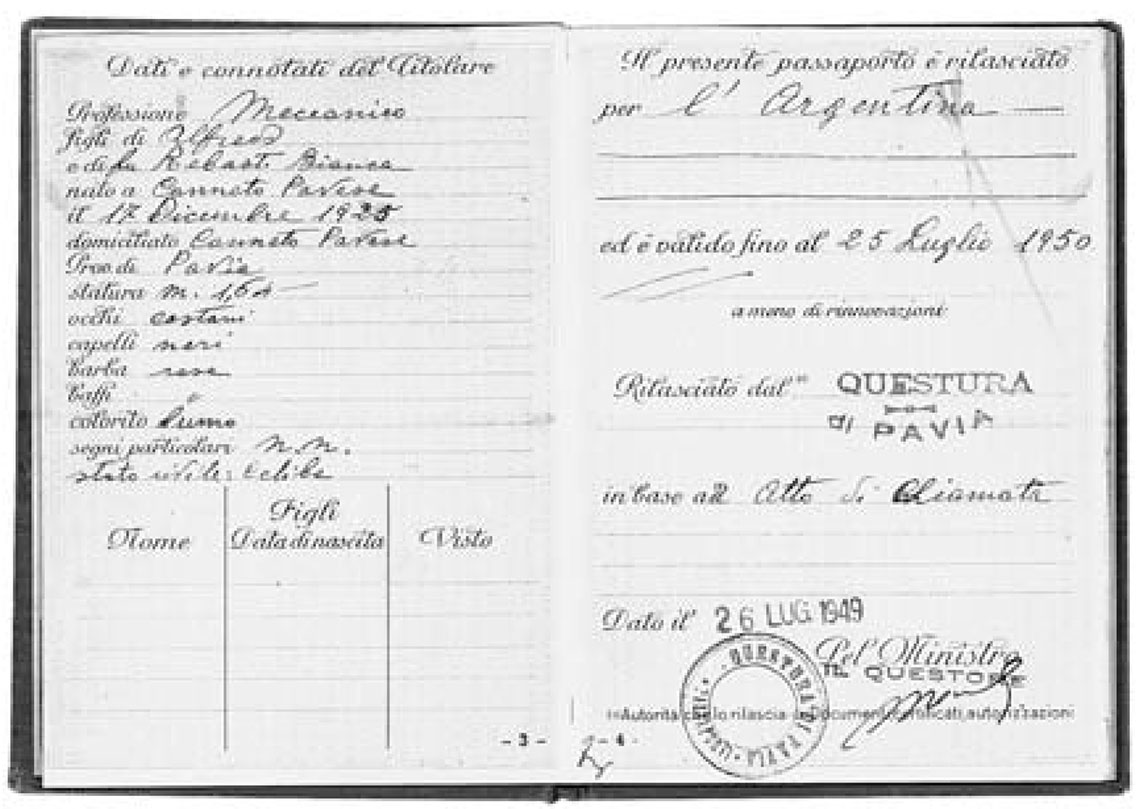 Dati e connotati del Titolare
Professione Meccanico
figli di Alfredo
e di fu Rebast. Bianca
nato a Canneto Pavese
il 17 Dicembre 1925
domiciliato Canneto Pavese
Prov. di Pavia
statura m. 1,64
occhi castani
capelli neri
barba rasa
baffi
colorito bruno
segni particolari n.n.
stato civile: celibe
Figli
Nome Data di nascita Visto
- 3 -
Il presente passaporto è rilasciato
per l' Argentina
ed è valido fino al 25 Luglio 1950
a meno di rinnovazioni
Rilasciato dal QUESTURA
di PAVIA
in base all Atto di Chiamata
Dato il 26 LUG 1949
Pel Ministro
IL QUESTORE
QUESTURA DI PAVIA
Autorità che lo rilascia Documenti, certificati, autorizzazioni
- 4 -